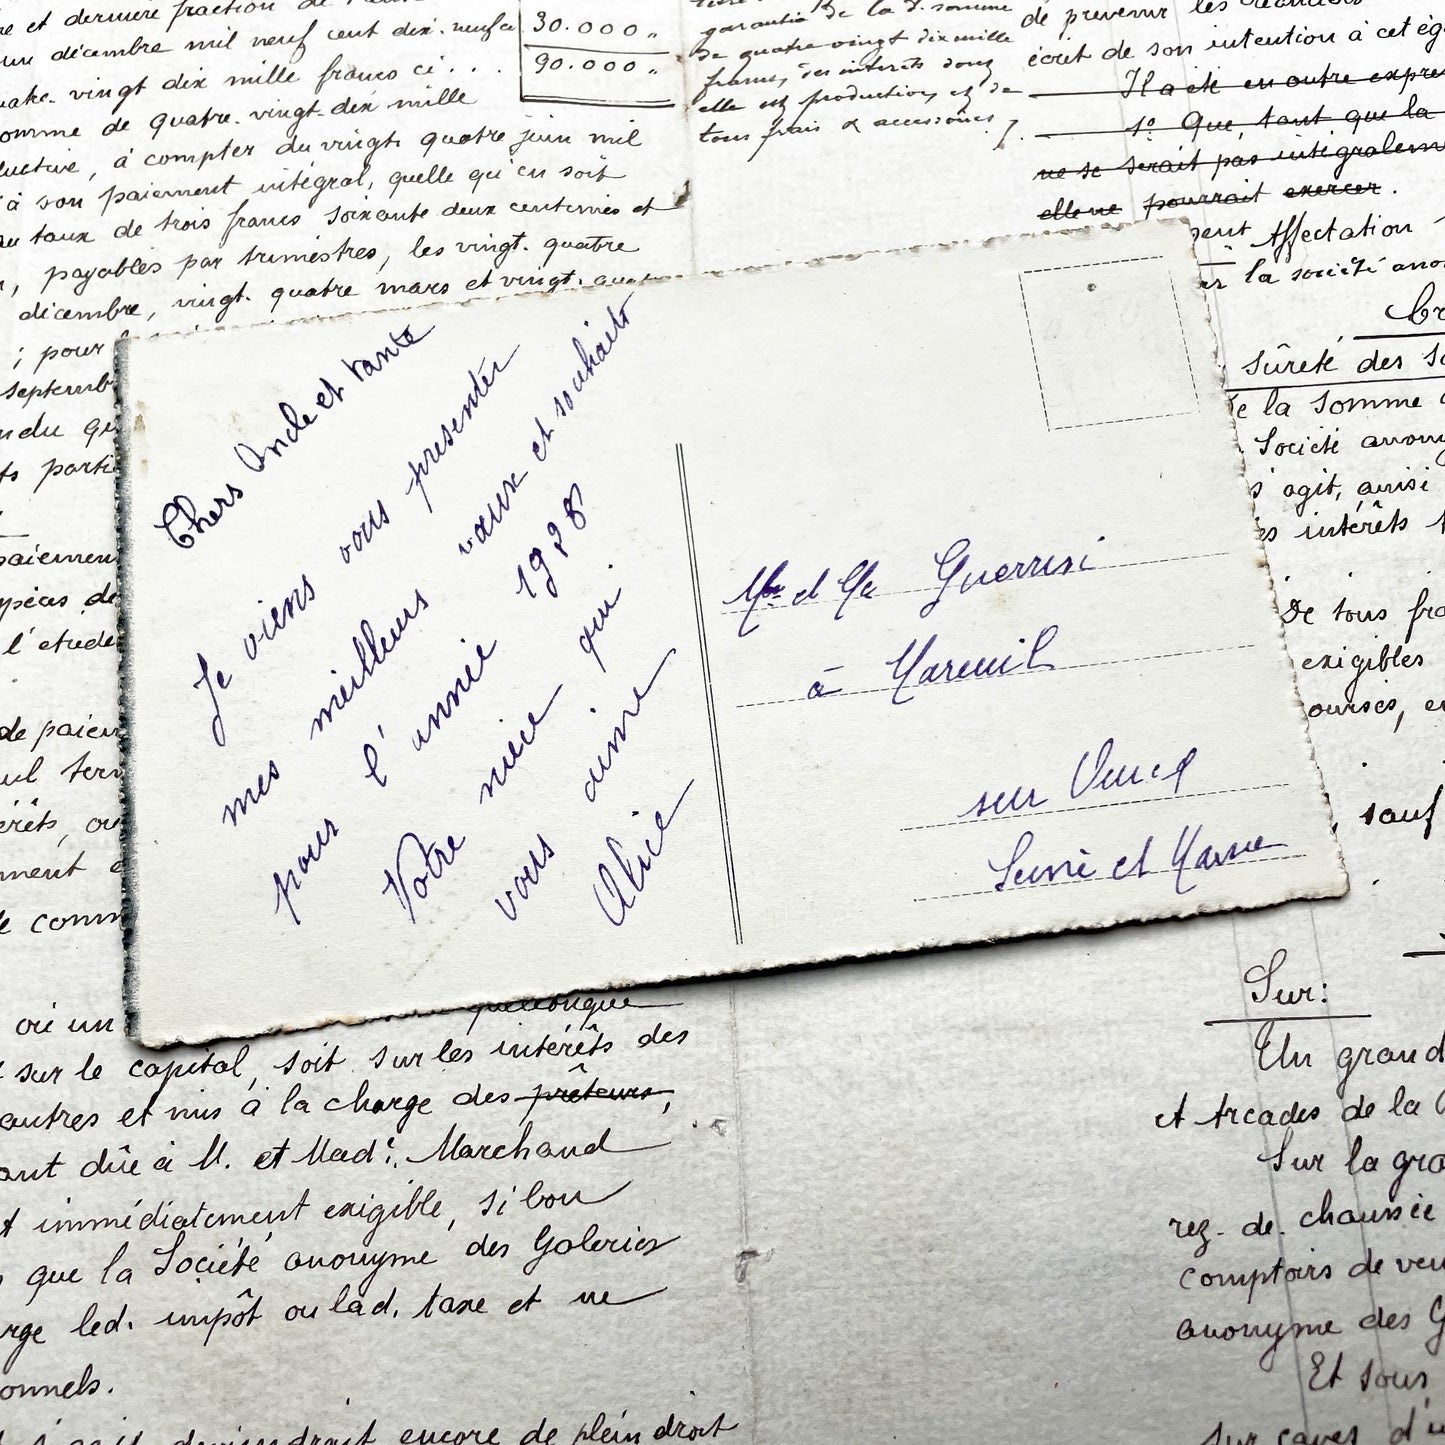 et dernière fraction de
un décembre mil neuf cent dix. neuf ci
30.000 „
vingt dix mille francs ci . . .
90.000 „
somme de quatre. vingt-dix mille
, à compter du vingt. quatre juin mil
à son paiement intégral, quelle qu'en soit
au taux de trois francs soixante deux centimes et
, payables par trimestres, les vingt. quatre
décembre, vingt. quatre mars et vingt.
; pour
garantie de la d. somme
de quatre vingt dix mille
francs, des intérêts dont
elle est productive, et de
tous frais & accessoires
de prévenir les
écrit de son intention à cet
Il a été en outre
1º Que, tant que la
ne se serait pas
elle ne pourrait exercer.
Affectation
la société
sûreté des
de la somme
Société
agit, ainsi
intérêts
De tous
exigibles
, sauf
Chers Oncle et tante
Je viens vous présenter
mes meilleurs vœux et souhaits
pour l'année 1928
Votre nièce qui
vous aime
Alice
Mr et Me Guerrisi
à Mareuil
sur Ourcq
Seine et Marne
paiement
l'étude
de
où un
quelconque
sur le capital, soit sur les intérêts des
autres et mis à la charge des prêteurs,
dûe à M. et Made. Marchand
immédiatement exigible, si bon
que la Société anonyme des Galeries
led. impôt ou lad. taxe et ne
encore de plein droit
Sur:
Un grand
et Arcades de la
Sur la
rez. de. chaussée
comptoirs de
anonyme des
Et sous
sur caves